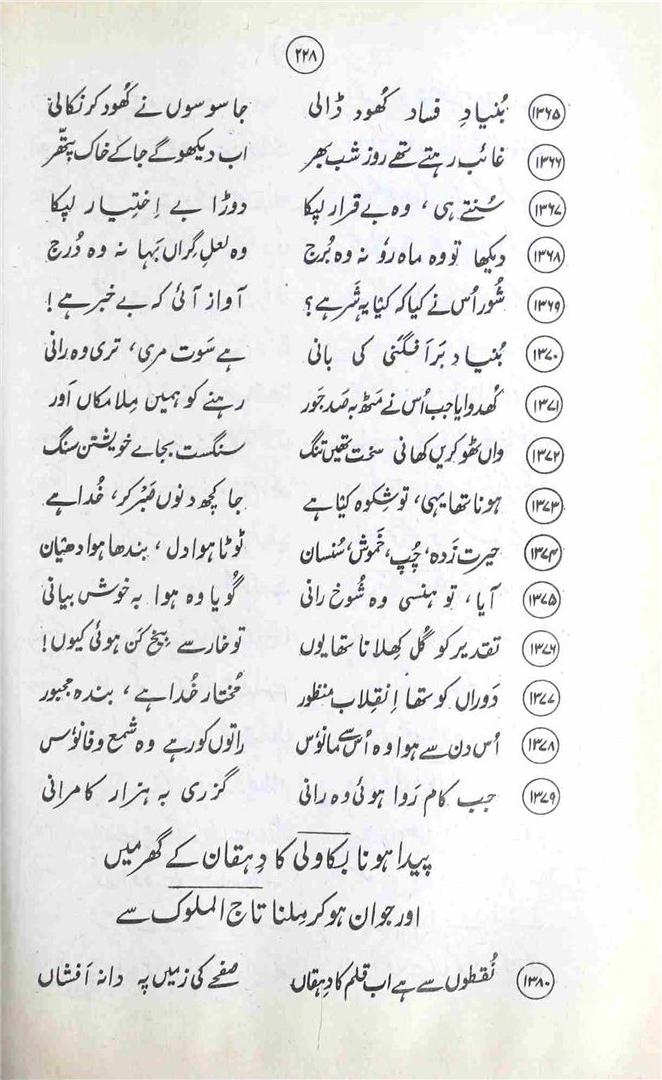 ۲۲۸
۱۳۶۵ بُنیادِ فساد کھود ڈالی جاسوسوں نے کُھود کر نکالی
۱۳۶۶ غائب رہتے تھے روز شب بھر اب دیکھوگے جاکے خاک پتّھر
۱۳۶۷ سُنتے ہی، وہ بے قرار لپکا دوڑا بے اِختِیار لپکا
۱۳۶۸ دیکھا تو وہ ماہ رٗو نہ وہ بُرج وہ لعلِ گِراں بَہا نہ وہ دُرج
۱۳۶۹ شُور اُس نے کیا کہ کیا یہ شَر ہے؟ آواز آئی کہ بے خبر ہے!
۱۳۷۰ بُنیاد بَر اَفگَنی کی بانی ہے سَوت مری، تری وہ رانی
۱۳۷۱ کُھدوایا جب اُس نے مَٹھ بہ صَد جَور رہنے کو ہمیں مِلا مکاں اَور
۱۳۷۲ واں ٹھوکریں کھانی سخت تھیں تنگ سنگست بجاے خویشتن سنگ
۱۳۷۳ ہونا تھا یہی، تو شِکوہ کیا ہے جا کچھ دنوں صَبر کر، خُدا ہے
۱۳۷۴ حیرت زَدہ، چُپ، خَموش، سُنسان ٹوٹا ہوا دل، بندھا ہوا دھیان
۱۳۷۵ آیا، تو ہنسی وہ شُوخ رانی گُویا وہ ہوا بہ خوش بیانی
۱۳۷۶ تقدیر کو گُل کھلانا تھا یوں تو خار سے بیخ کَن ہوئی کیوں!
۱۳۷۷ دَوراں کو تھا اِنقِلاب منظور مُختار خُدا ہے، بندہ مجبور
۱۳۷۸ اُس دن سے ہوا وہ اُس سے مانوٗس راتوں کو رہے وہ شمع و فانوٗس
۱۳۷۹ جب کام رَوا ہوئی وہ رانی گزری بہ ہزار کامرانی
پیدا ہونا بکاولی کا دِہقان کے گھر میں
اور جوان ہو کر مِلنا تاج الملوک سے
۱۳۸۰ نُقطوں سے ہے اب قلم کا دِہقاں صفحے کی زمیں پہ دانہ اَفشاں